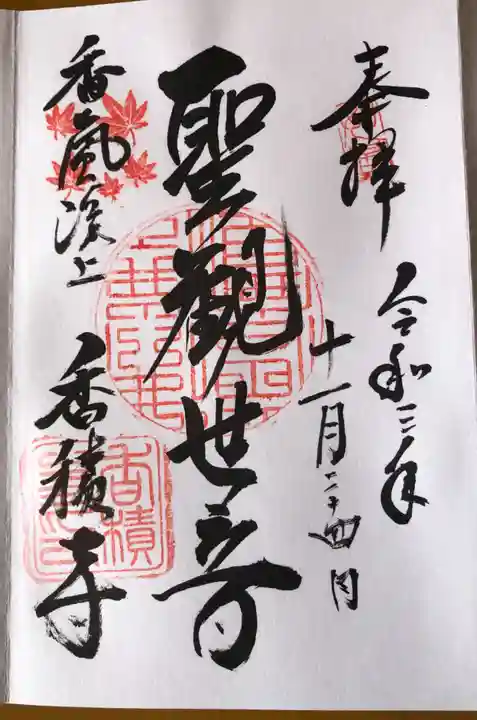 奉拝
令和三年
十一月二十四日
聖觀世音
香嵐渓上
香積寺
香積